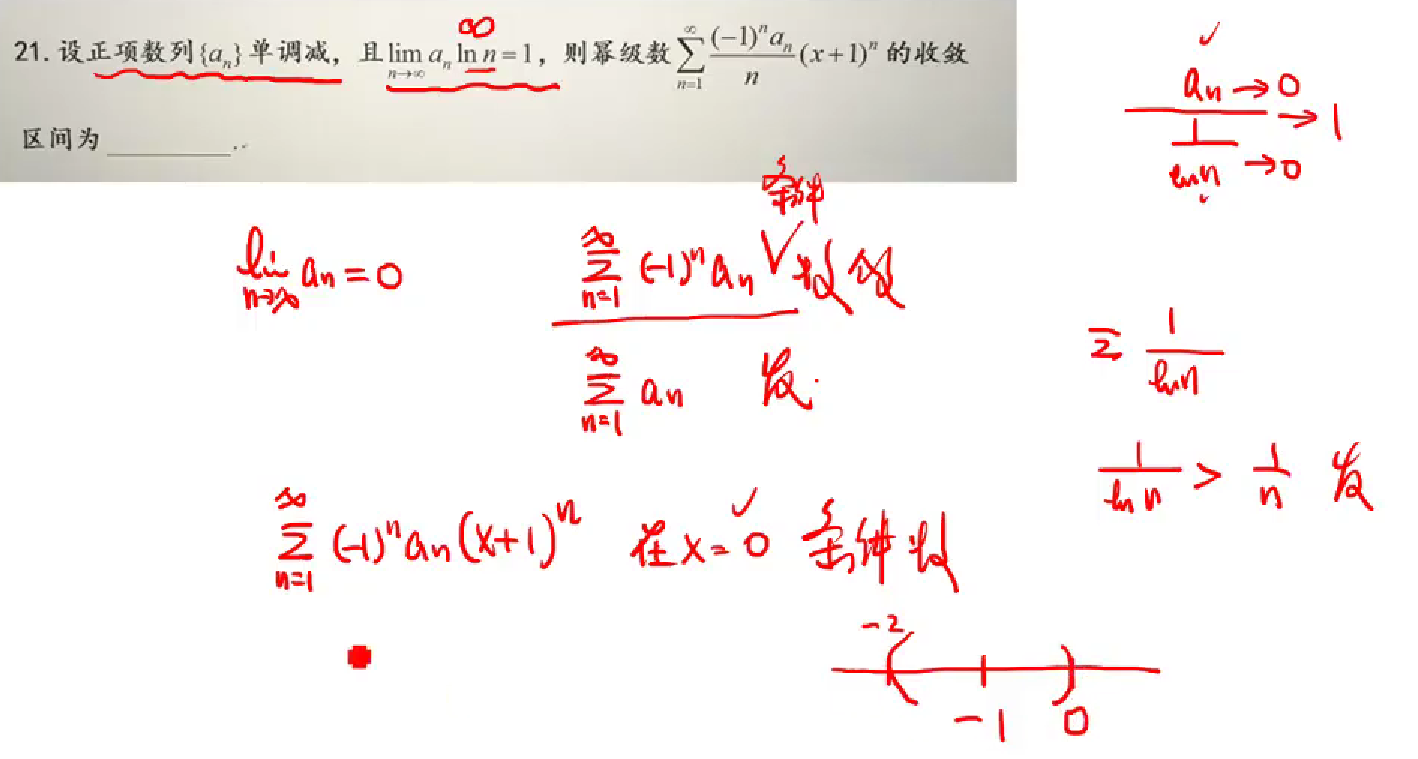 21. 设正项数列{aₙ}单调减，且lim_{n→∞} aₙ ln n = 1，则幂级数∑_{n=1}^{∞} \frac{(-1)ⁿaₙ}{n}(x+1)ⁿ的收敛
区间为________..
∞
\frac{aₙ→0}{\frac{1}{ln n}→0}→1
✓
条件
lim_{n→∞} aₙ = 0
∑_{n=1}^{∞} (-1)ⁿaₙ √收敛
∑_{n=1}^{∞} aₙ 发.
∑ \frac{1}{ln n}
\frac{1}{ln n} > \frac{1}{n} 发
∑_{n=1}^{∞} (-1)ⁿaₙ(x+1)ⁿ 在x=0 条件收
✓
-2
-1 0